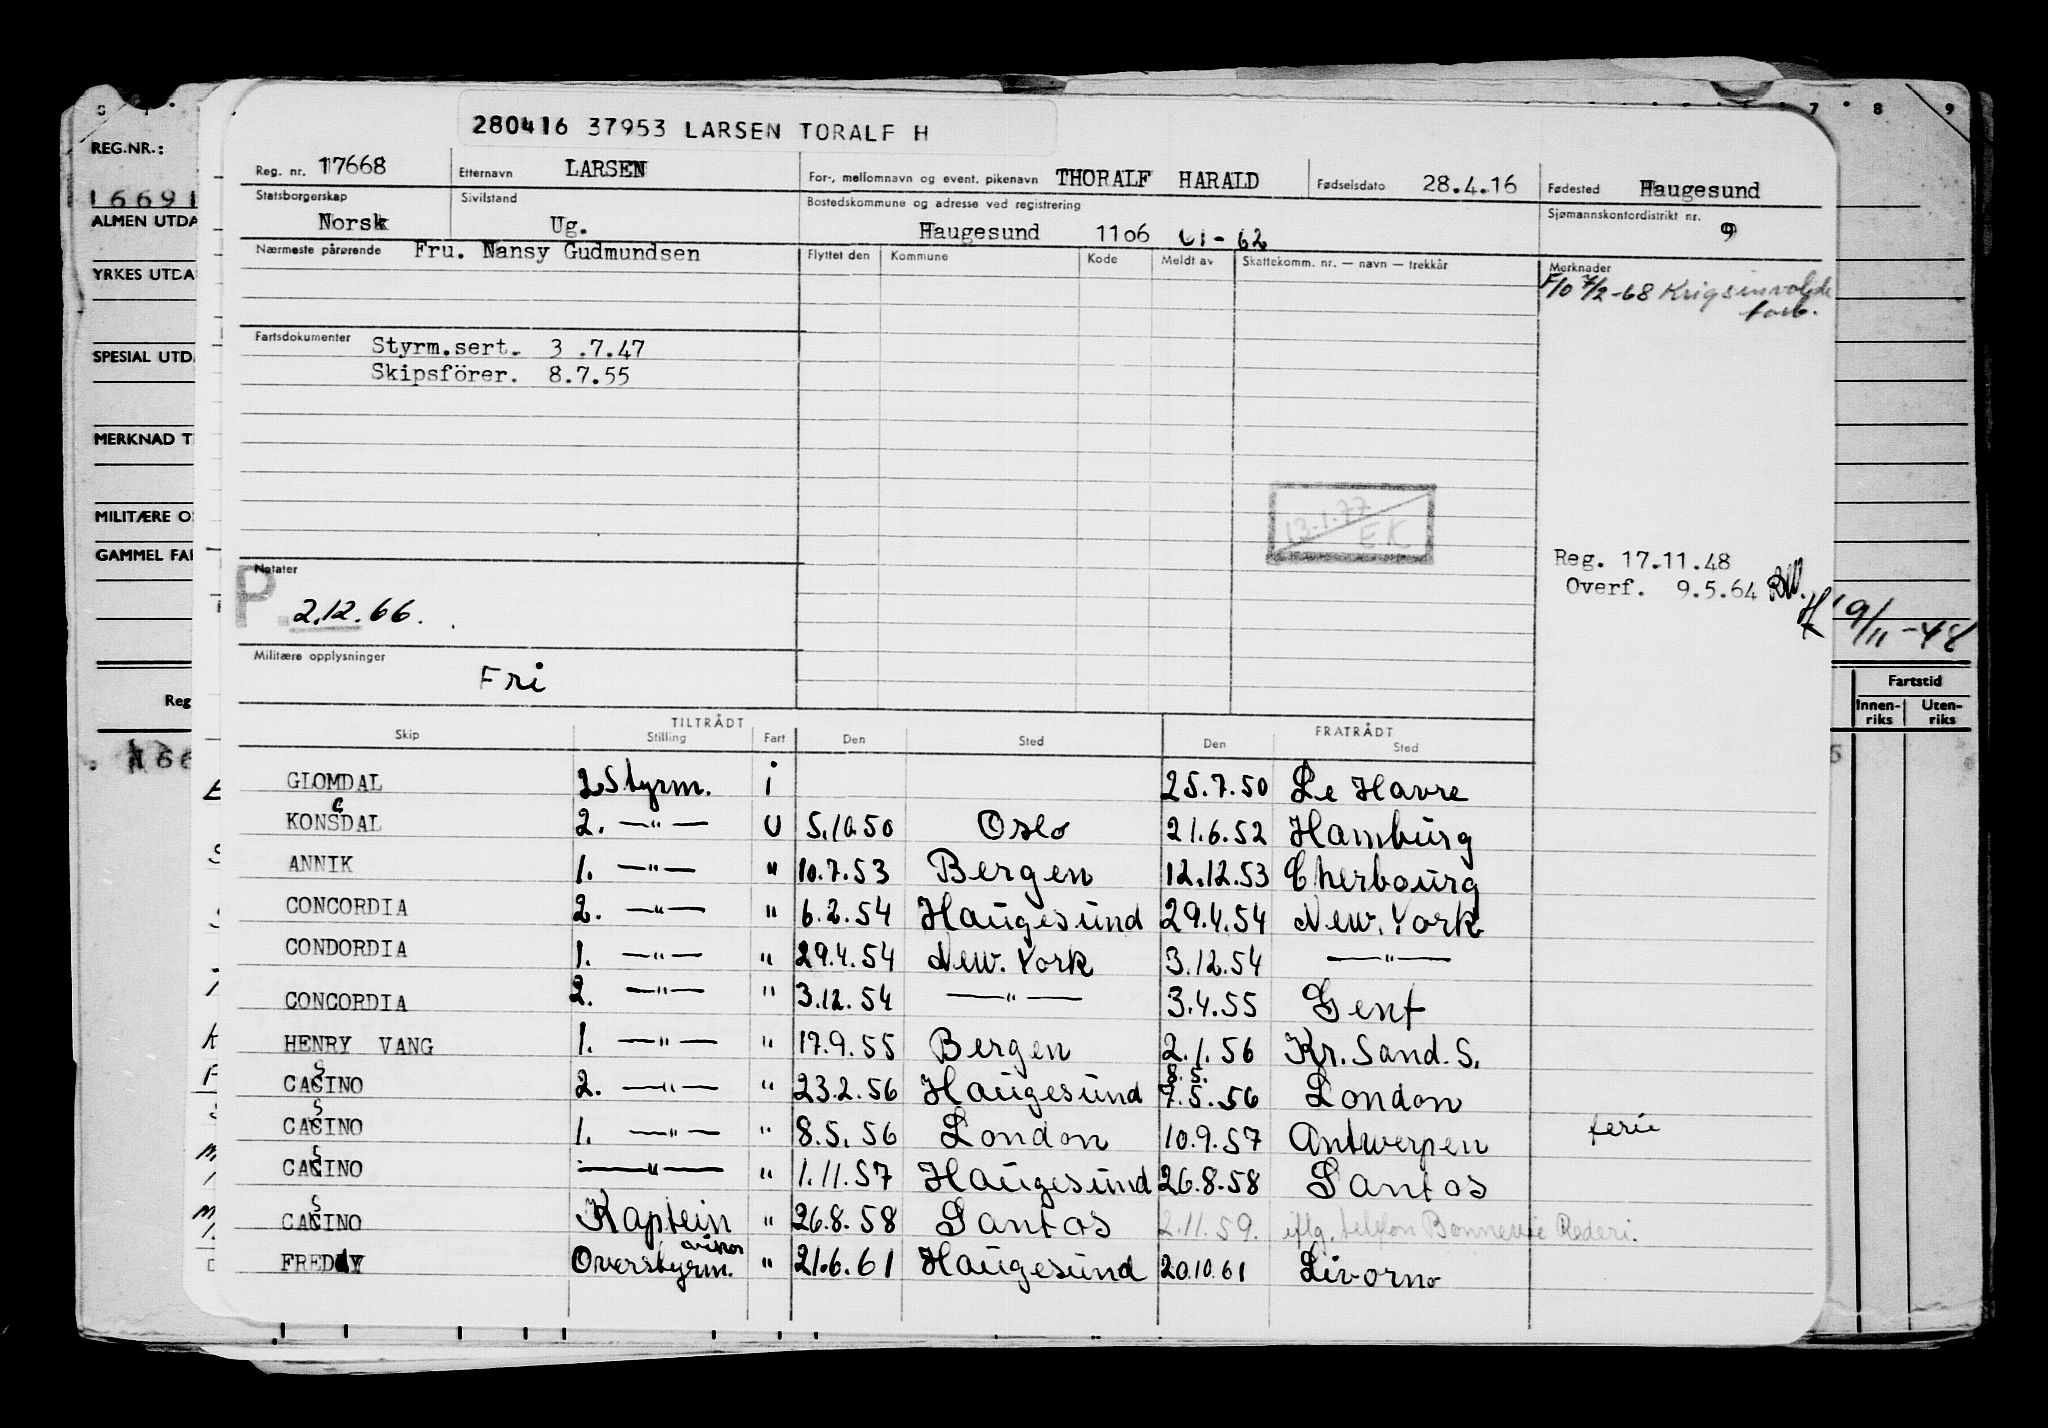 280416 37953 LARSEN TORALF H
Reg. nr. 17668 Etternavn LARSEN For-, mellomnavn og event. pikenavn THORALF HARALD Fødselsdato 28.4.16 Fødested Haugesund
Statsborgerskap Norsk Sivilstand Ug. Bostedskommune og adresse ved registrering Haugesund 1106 01-62 Sjømannskontordistrikt nr. 9
Nærmeste pårørende Fru. Nansy Gudmundsen Flyttet den Kommune Kode Meldt av Skattekomm. nr. — navn — trekkår Merknader
F/O 7/2-68 Krigsinvalide
Fartsdokumenter Styrm.sert. 3 .7.47
Skipsförer. 8.7.55
13.1.77
EK
Reg. 17.11.48
Overf. 9.5.64
Notater
P 2.12.66.
Militære opplysninger
Fri
TILTRÅDT FRATRÅDT
Skip Stilling Fart Den Sted Den Sted
GLOMDAL 2 Styrm. i 25.7.50 Le Havre
G
KONSDAL 2. —"— U 5.10.50 Oslo 21.6.52 Hamburg
ANNIK 1. —"— " 10.7.53 Bergen 12.12.53 Cherbourg
CONCORDIA 2. —"— " 6.2.54 Haugesund 29.4.54 New.York
CONDORDIA 1. —"— " 29.4.54 New.York 3.12.54 —"—
CONCORDIA 2. —"— " 3.12.54 —"— 3.4.55 Gent
HENRY VANG 1. —"— " 17.9.55 Bergen 2.1.56 Kr.Sand.S.
S 8.5.
CASINO 2. —"— " 23.2.56 Haugesund 7.5.56 London
S
CASINO 1. —"— " 8.5.56 London 10.9.57 Antwerpen ferie
S
CASINO —"— " 1.11.57 Haugesund 26.8.58 Santos
S
CASINO Kaptein " 26.8.58 Santos 2.11.59. iflg. telefon Bonnevie Rederi.
FREDDY Overstyrm. " 21.6.61 Haugesund 20.10.61 Livorno
REG.NR.:
16691
ALMEN UTDA
YRKES UTDA
SPESIAL UTD
MERKNAD T
MILITÆRE O
GAMMEL FA
Reg
7 8 9
19/11-48
Fartstid
Innen-riks Uten-riks